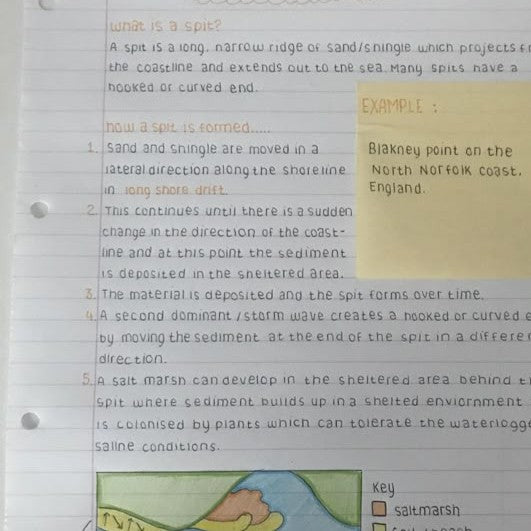 what is a spit?
A spit is a long, narrow ridge of sand/shingle which projects
the coastline and extends out to the sea. Many spits have a
hooked or curved end.
EXAMPLE :
Blakney point on the
North Norfolk coast,
England.
how a spit is formed.....
1. Sand and shingle are moved in a
lateral direction along the shoreline
in long shore drift.
2. This continues until there is a sudden
change in the direction of the coast-
line and at this point the sediment
is deposited in the sheltered area.
3. The material is deposited and the spit forms over time.
4. A second dominant /storm wave creates a hooked or curved
by moving the sediment at the end of the spit in a
direction.
5. A salt marsh can develop in the sheltered area behind
spit where sediment builds up in a shelted enviornment
is colonised by plants which can tolerate the
saline conditions.
Key
saltmarsh